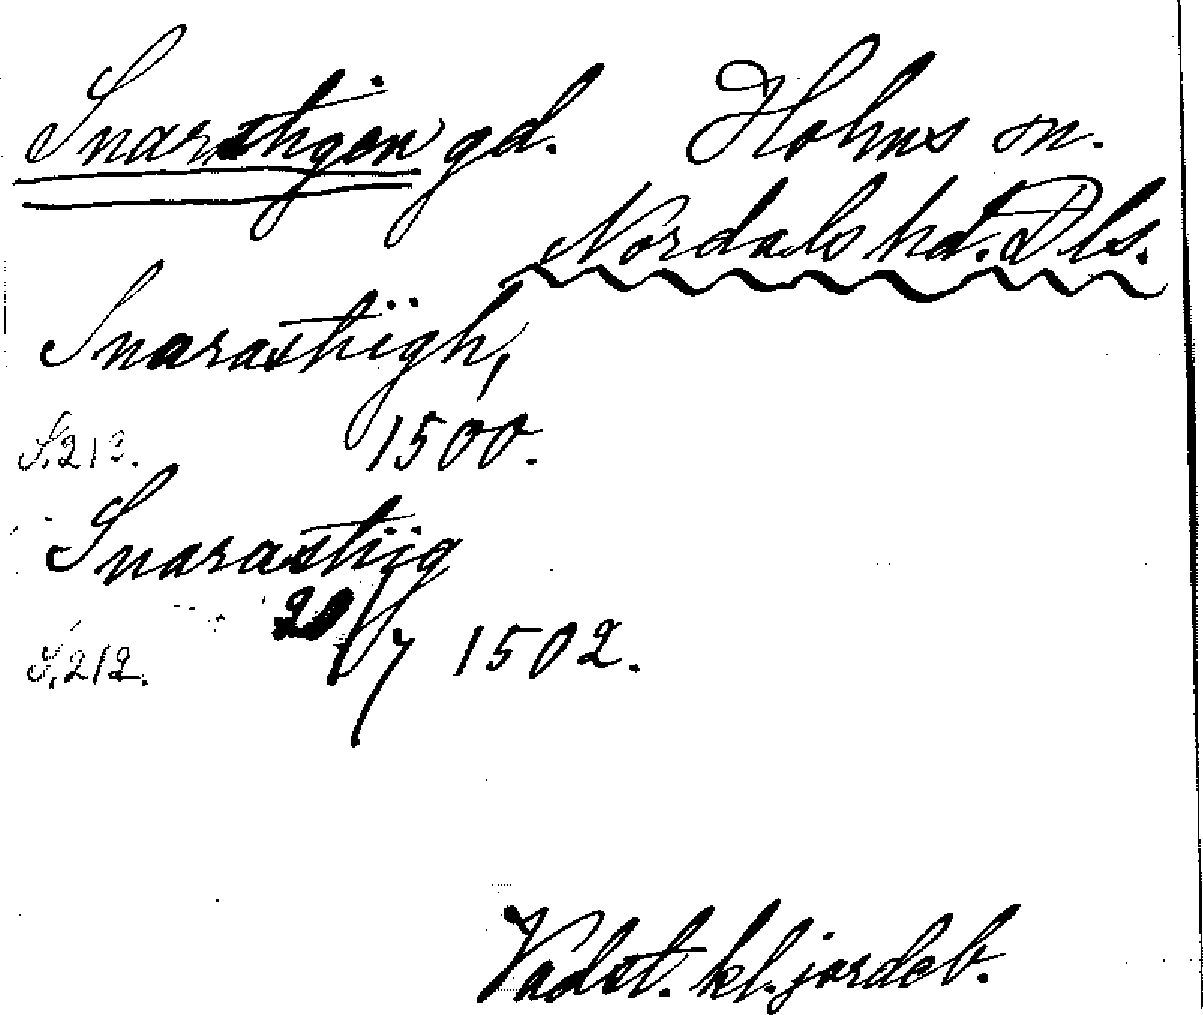 Snarstigen gd. Holms sn.
Nordals hd. Dls.
Snarastiigh,
S. 213. 1500.
Snarastiig
20/7 1502.
S. 212.
Vadst. kl. jordeb.